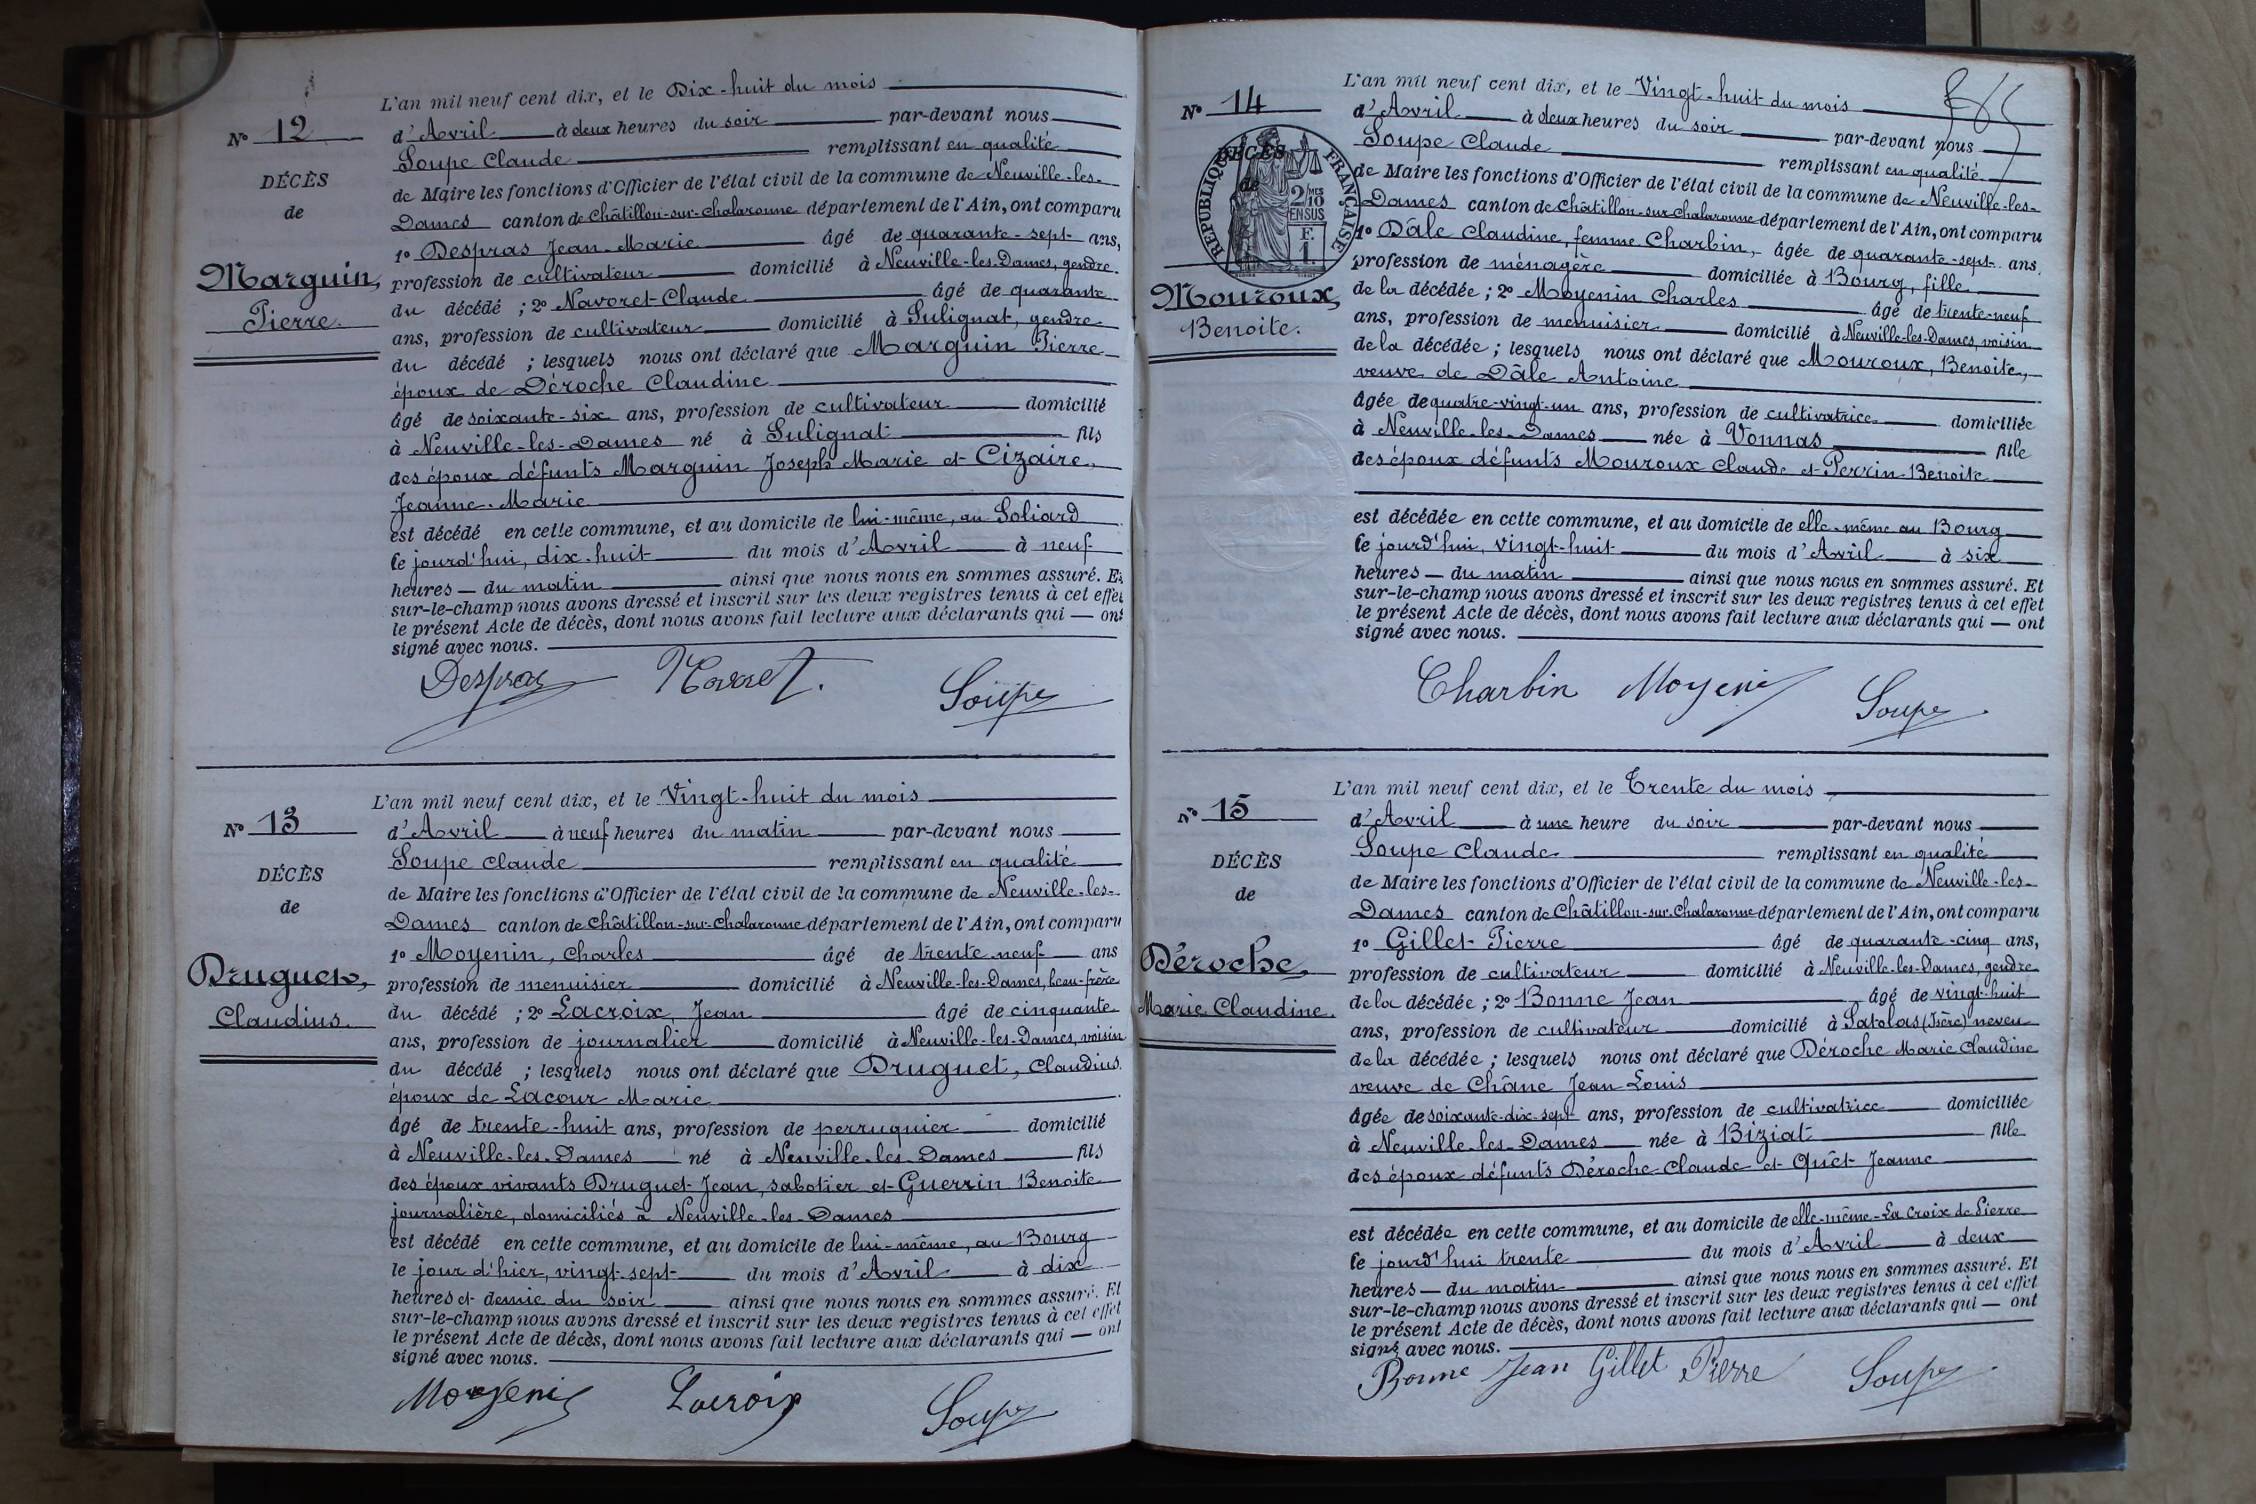 L'an mil neuf cent dix, et le Dix-huit du mois
N° 12
d'Avril à deux heures du soir par-devant nous
Soupe Claude remplissant en qualité
DÉCÈS
de Maire les fonctions d'Officier de l'état civil de la commune de Neuville-les-
de
Dames canton de Châtillon-sur-Chalaronne département de l'Ain, ont comparu
1° Despras Jean-Marie âgé de quarante-sept ans,
Marguin,
profession de cultivateur domicilié à Neuville-les-Dames, gendre
Pierre.
du décédé ; 2° Navoret Claude âgé de quarante
ans, profession de cultivateur domicilié à Sulignat, gendre
du décédé ; lesquels nous ont déclaré que Marguin Pierre
époux de Déroche Claudine
âgé de soixante-six ans, profession de cultivateur domicilié
à Neuville-les-Dames né à Sulignat fils
des époux défunts Marguin Joseph Marie et Cizaire,
Jeanne-Marie
est décédé en cette commune, et au domicile de lui-même, au Soliard
ce jourd'hui, dix-huit du mois d'Avril à neuf
heures du matin ainsi que nous nous en sommes assuré. Et
sur-le-champ nous avons dressé et inscrit sur les deux registres tenus à cet effet
le présent Acte de décès, dont nous avons fait lecture aux déclarants qui — ont
signé avec nous.
Despras Navoret Soupe
L'an mil neuf cent dix, et le Vingt-huit du mois
N° 13
d'Avril à neuf heures du matin par-devant nous
Soupe Claude remplissant en qualité
DÉCÈS
de Maire les fonctions d'Officier de l'état civil de la commune de Neuville-les-
de
Dames canton de Châtillon-sur-Chalaronne département de l'Ain, ont comparu
1° Moyenin, Charles âgé de trente-neuf ans
Druguet,
profession de menuisier domicilié à Neuville-les-Dames, beau-frère
Claudius.
du décédé ; 2° Lacroix, Jean âgé de cinquante
ans, profession de journalier domicilié à Neuville-les-Dames, voisin
du décédé ; lesquels nous ont déclaré que Druguet, Claudius
époux de Lacour Marie
âgé de trente-huit ans, profession de perruquier domicilié
à Neuville-les-Dames né à Neuville-les-Dames fils
des époux vivants Druguet Jean, sabotier et Guerrin Benoite
journalière, domiciliés à Neuville-les-Dames
est décédé en cette commune, et au domicile de lui-même, au Bourg
le jour d'hier, vingt-sept du mois d'Avril à dix
heures et demie du soir ainsi que nous nous en sommes assuré. Et
sur-le-champ nous avons dressé et inscrit sur les deux registres tenus à cet effet
le présent Acte de décès, dont nous avons fait lecture aux déclarants qui — ont
signé avec nous.
Moyenin Lacroix Soupe
L'an mil neuf cent dix, et le Vingt-huit du mois
N° 14
d'Avril à deux heures du soir par-devant nous
Soupe Claude remplissant en qualité
DÉCÈS
de Maire les fonctions d'Officier de l'état civil de la commune de Neuville-les-
de
RÉPUBLIQUE FRANÇAISE
2/10MES
EN SUS
F.
1.
Dames canton de Châtillon-sur-Chalaronne département de l'Ain, ont comparu
1° Dâle Claudine, femme Charbin, âgée de quarante-sept ans,
profession de ménagère domiciliée à Bourg, fille
Mouroux,
de la décédée ; 2° Moyenin Charles âgé de trente-neuf
Benoite.
ans, profession de menuisier domicilié à Neuville-les-Dames, voisin
de la décédée ; lesquels nous ont déclaré que Mouroux, Benoite,
veuve de Dâle Antoine
âgée de quatre-vingt-un ans, profession de cultivatrice domiciliée
à Neuville-les-Dames née à Vonnas fille
des époux défunts Mouroux Claude et Perrin Benoite
est décédée en cette commune, et au domicile de elle-même au Bourg
ce jourd'hui, vingt-huit du mois d'Avril à six
heures — du matin ainsi que nous nous en sommes assuré. Et
sur-le-champ nous avons dressé et inscrit sur les deux registres tenus à cet effet
le présent Acte de décès, dont nous avons fait lecture aux déclarants qui — ont
signé avec nous.
Charbin Moyenin Soupe
L'an mil neuf cent dix, et le Trente du mois
N° 15
d'Avril à une heure du soir par-devant nous
Soupe Claude remplissant en qualité
DÉCÈS
de Maire les fonctions d'Officier de l'état civil de la commune de Neuville-les-
de
Dames canton de Châtillon-sur-Chalaronne département de l'Ain, ont comparu
1° Gillet Pierre âgé de quarante-cinq ans,
Déroche,
profession de cultivateur domicilié à Neuville-les-Dames, gendre
Marie Claudine.
de la décédée ; 2° Bonne Jean âgé de vingt-huit
ans, profession de cultivateur domicilié à Satolas (Isère) neveu
de la décédée ; lesquels nous ont déclaré que Déroche Marie Claudine
veuve de Châne Jean Louis
âgée de soixante-dix-sept ans, profession de cultivatrice domiciliée
à Neuville-les-Dames née à Biziat fille
des époux défunts Déroche Claude et Quêt Jeanne
est décédée en cette commune, et au domicile de elle-même La Croix de Pierre
ce jourd'hui trente du mois d'Avril à deux
heures — du matin ainsi que nous nous en sommes assuré. Et
sur-le-champ nous avons dressé et inscrit sur les deux registres tenus à cet effet
le présent Acte de décès, dont nous avons fait lecture aux déclarants qui — ont
signé avec nous.
Bonne Jean Gillet Pierre Soupe